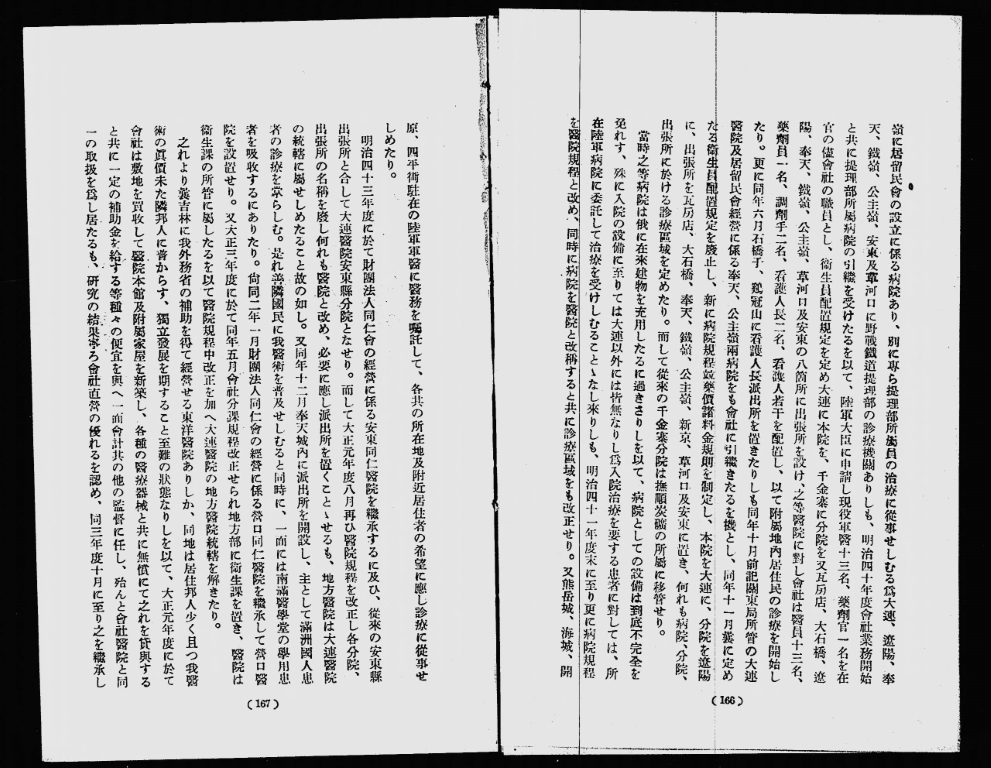 嶺に居留民會の設立に係る病院あり、別に專ら提理部所屬員の治療に從事せしむる爲大連、遼陽、奉
天、鐵嶺、公主嶺、安東及草河口に野戰鐵道提理部の診療機關ありしも、明治四十年度會社業務開始
と共に提理部所屬病院の引繼を受けたるを以て、陸軍大臣に申請し現役軍醫十三名、藥劑官一名を在
官の儘會社の職員とし、衛生員配置規定を定め大連に本院を、千金寨に分院を又瓦房店、大石橋、遼
陽、奉天、鐵嶺、公主嶺、草河口及安東の八箇所に出張所を設け、之等醫院に對し會社は醫員十三名、
藥劑員一名、調劑手二名、看護人長二名、看護人若干を配置し、以て附屬地内居住民の診療を開始し
たり。更に同年六月石橋子、鷄冠山に看護人長派出所を置きたりしも同年十月前記關東局所管の大連
醫院及居留民會經營に係る奉天、公主嶺兩病院をも會社に引繼きたるを機とし、同年十一月曩に定め
たる衛生員配置規定を廢止し、新に病院規程竝藥價諸料金規則を制定し、本院を大連に、分院を遼陽
に、出張所を瓦房店、大石橋、奉天、鐵嶺、公主嶺、新京、草河口及安東に置き、何れも病院、分院、
出張所に於ける診療區域を定めたり。而して從來の千金寨分院は撫順炭礦の所屬に移管せり。
當時之等病院は俄に在來建物を充用したるに過きさりしを以て、病院としての設備は到底不完全を
免れす、殊に入院の設備に至りては大連以外には皆無なりし爲入院治療を要する患者に對しては、所
在陸軍病院に委託して治療を受けしむることゝなし來りしも、明治四十一年度末に至り更に病院規程
を醫院規程と改め、同時に病院を醫院と改稱すると共に診療區域をも改正せり。又熊岳城、海城、開
(166)
原、四平街駐在の陸軍軍醫に醫務を囑託して、各其の所在地及附近居住者の希望に應し診療に從事せ
しめたり。
明治四十三年度に於て財團法人同仁會の經營に係る安東同仁醫院を繼承するに及ひ、從來の安東縣
出張所と合して大連醫院安東縣分院となせり。而して大正元年度八月再ひ醫院規程を改正し各分院、
出張所の名稱を廢し何れも醫院と改め、必要に應し派出所を置くことゝせるも、地方醫院は大連醫院
の統轄に屬せしめたること故の如し。又同年十二月奉天城内に派出所を開設し、主として滿洲國人患
者の診療を掌らしむ。是れ善隣國民に我醫術を普及せしむると同時に、一面には南滿醫學堂の學用患
者を吸收するにありたり。尙同二年一月財團法人同仁會の經營に係る營口同仁醫院を繼承して營口醫
院を設置せり。又大正三年度に於て同年五月會社分課規程改正せられ地方部に衛生課を置き、醫院は
衛生課の所管に屬したるを以て醫院規程中改正を加へ大連醫院の地方醫院統轄を解きたり。
之れより曩吉林に我外務省の補助を得て經營せる東洋醫院ありしか、同地は居住邦人少く且つ我醫
術の眞價未た隣邦人に普からす、獨立發展を期すること至難の狀態なりしを以て、大正元年度に於て
會社は敷地を買收して醫院本館及附屬家屋を新築し、各種の醫療器械と共に無償にて之れを貸與する
と共に一定の補助金を給する等種々の便宜を與へ一面會計其の他の監督に任し、殆んと會社醫院と同
一の取扱を爲し居たるも、研究の結果寧ろ會社直營の優れるを認め、同三年度十月に至り之を繼承し
(167)